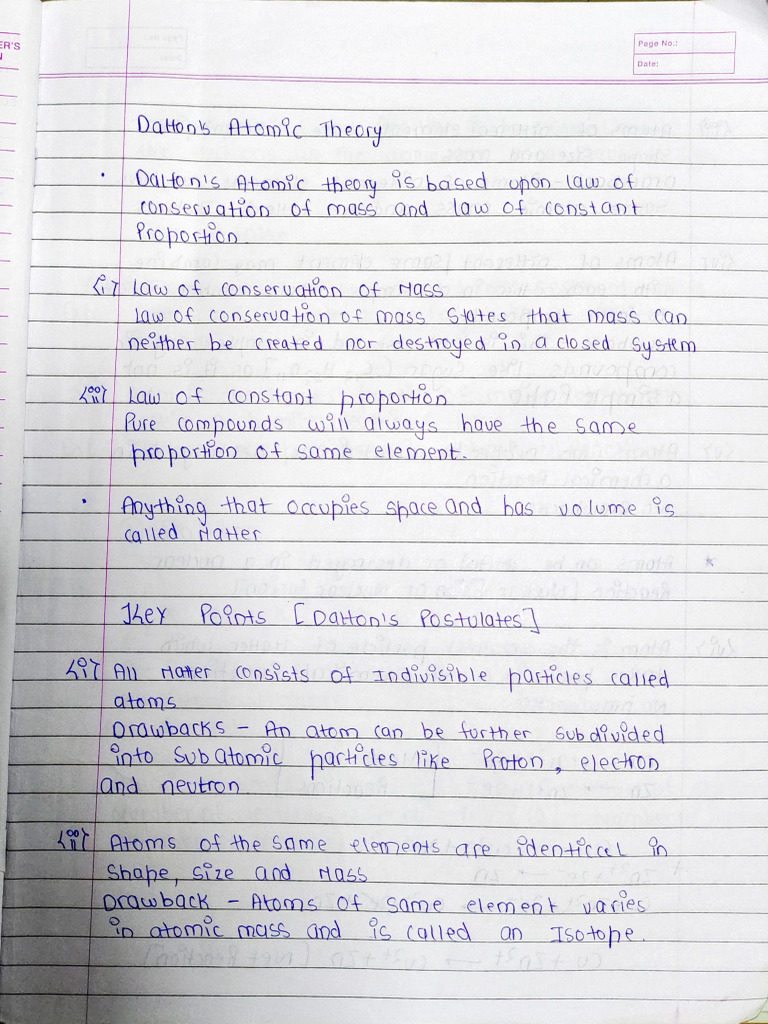 ER'S
N
Page No.:
Date:
Dalton's Atomic Theory
· Dalton's Atomic theory is based upon law of
conservation of mass and law of constant
Proportion.
<i> Law of conservation of Mass
Law of conservation of mass States that mass can
neither be created nor destroyed in a closed system
<ii> Law of constant proportion
Pure compounds will always have the same
proportion of same element.
· Anything that occupies space and has volume is
called Matter
Key Points [Dalton's Postulates]
<i> All Matter consists of Indivisible particles called
atoms
Drawbacks - An atom can be further subdivided
into Subatomic particles like Proton, electron
and neutron
<ii> Atoms of the same elements are identical in
Shape, size and Mass
Drawback - Atoms of same element varies
in atomic mass and is called an Isotope.